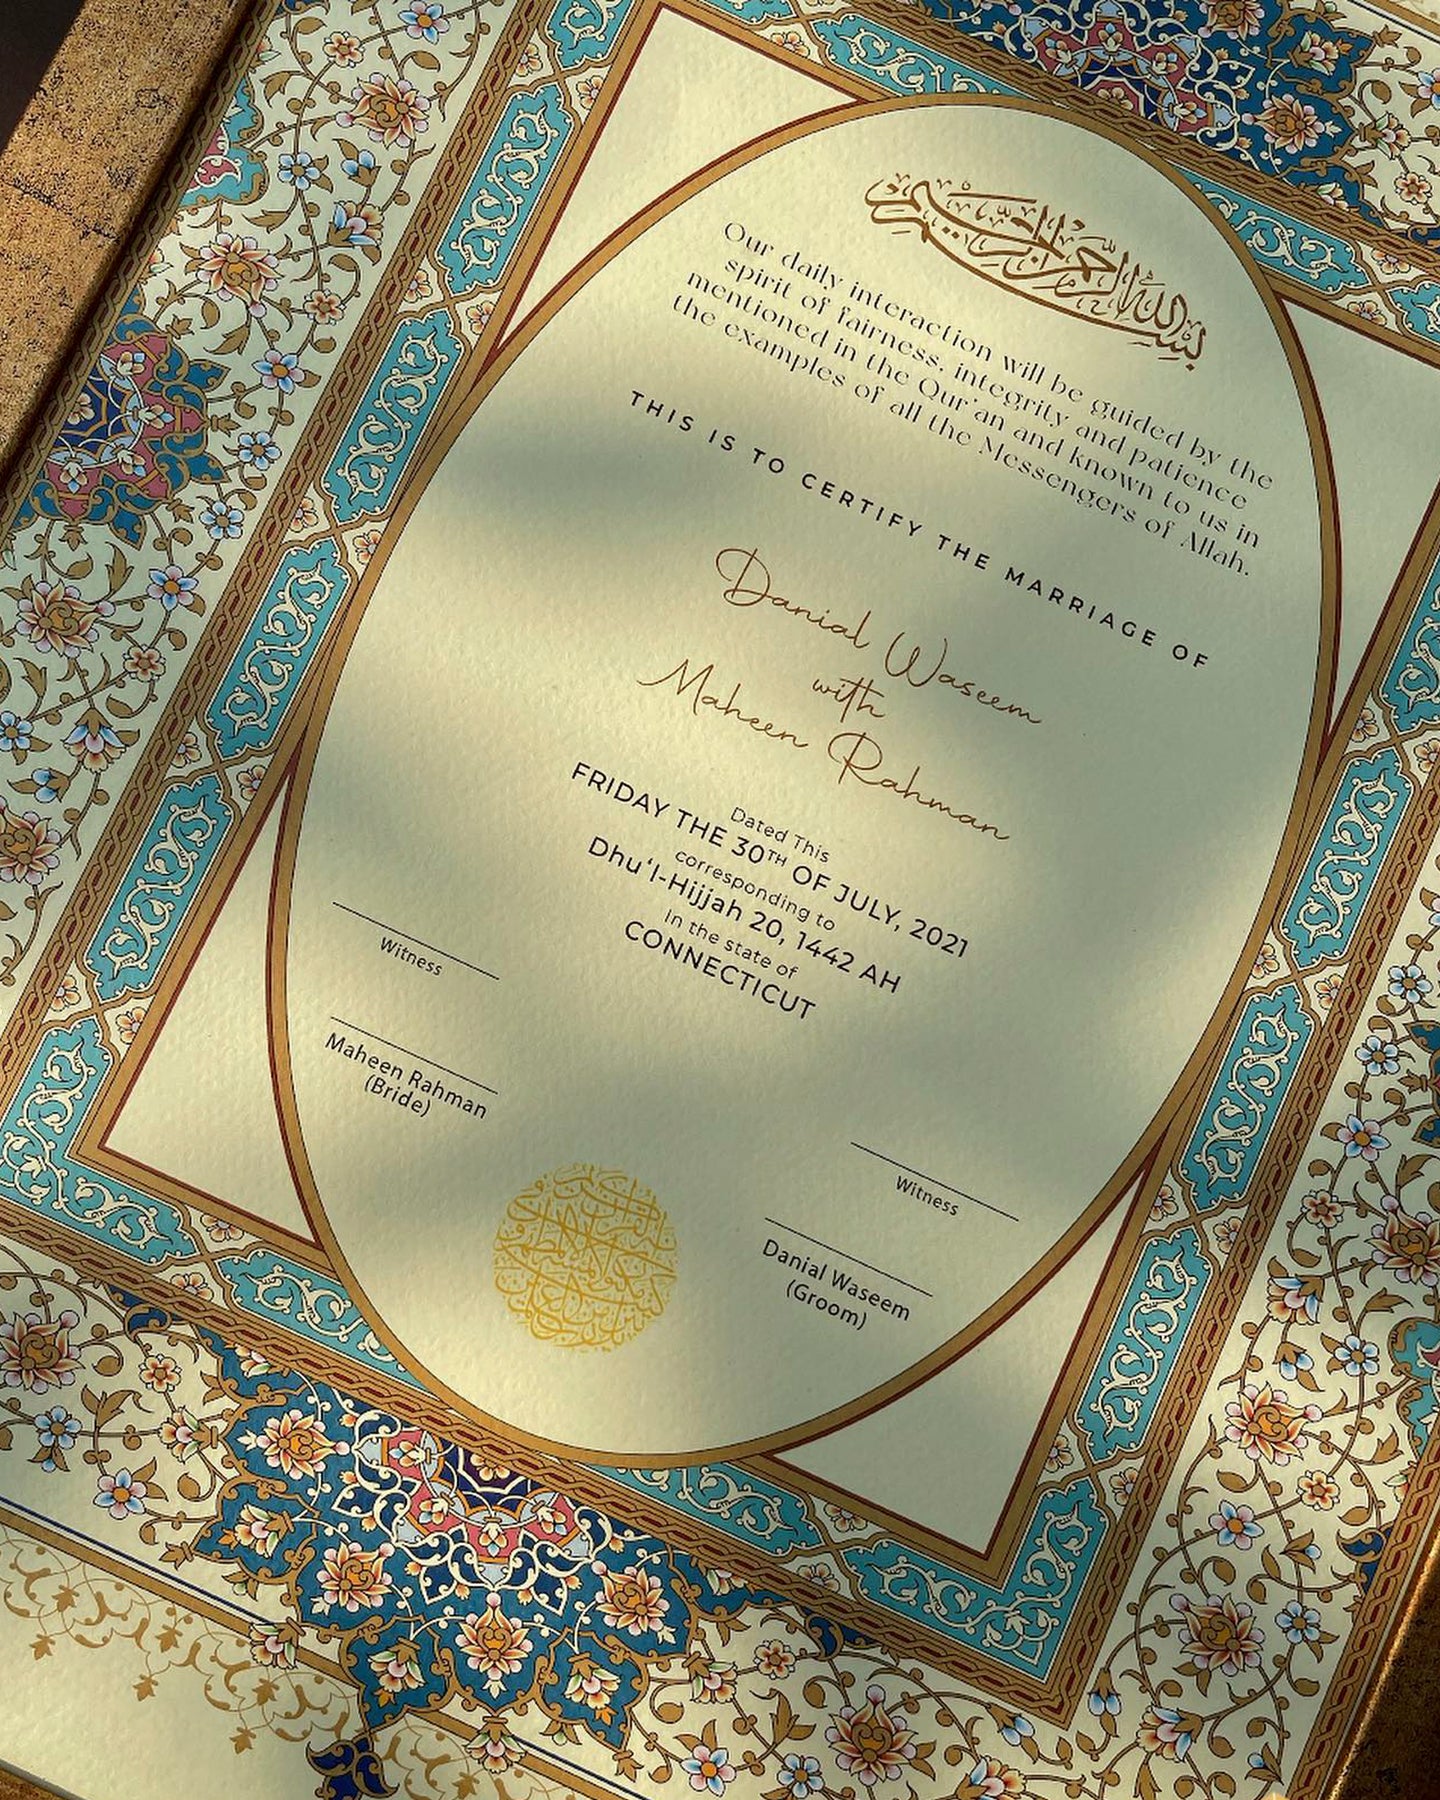 بسم الله الرحمن الرحيم
Our daily interaction will be guided by the
spirit of fairness, integrity and patience
mentioned in the Qur'an and known to us in
the examples of all the Messengers of Allah.
THIS IS TO CERTIFY THE MARRIAGE OF
Danial Waseem
with
Maheen Rahman
Dated This
FRIDAY THE 30TH OF JULY, 2021
corresponding to
Dhu‘l-Hijjah 20, 1442 AH
In the state of
CONNECTICUT
Witness
Maheen Rahman
(Bride)
Witness
Danial Waseem
(Groom)